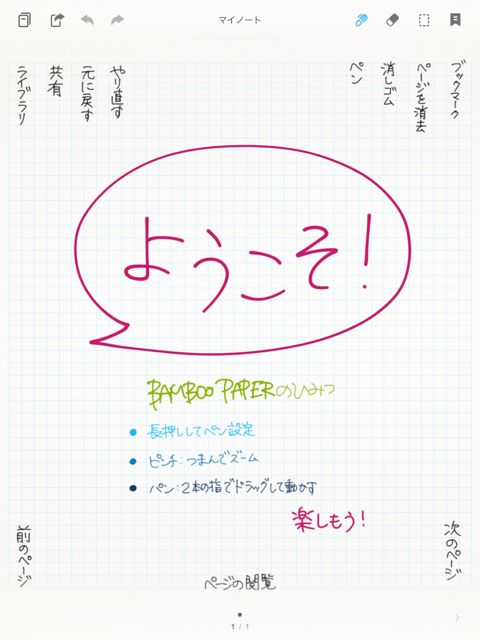 マイノート
ライブラリ
共有
元に戻す
やり直す
ペン
消しゴム
ページを消去
ブックマーク
ようこそ!
BAMBOO PAPERのひみつ
• 長押ししてペン設定
• ピンチ:つまんでズーム
• パン:2本の指でドラッグして動かす
楽しもう!
前のページ
ページの閲覧
次のページ
1 / 1